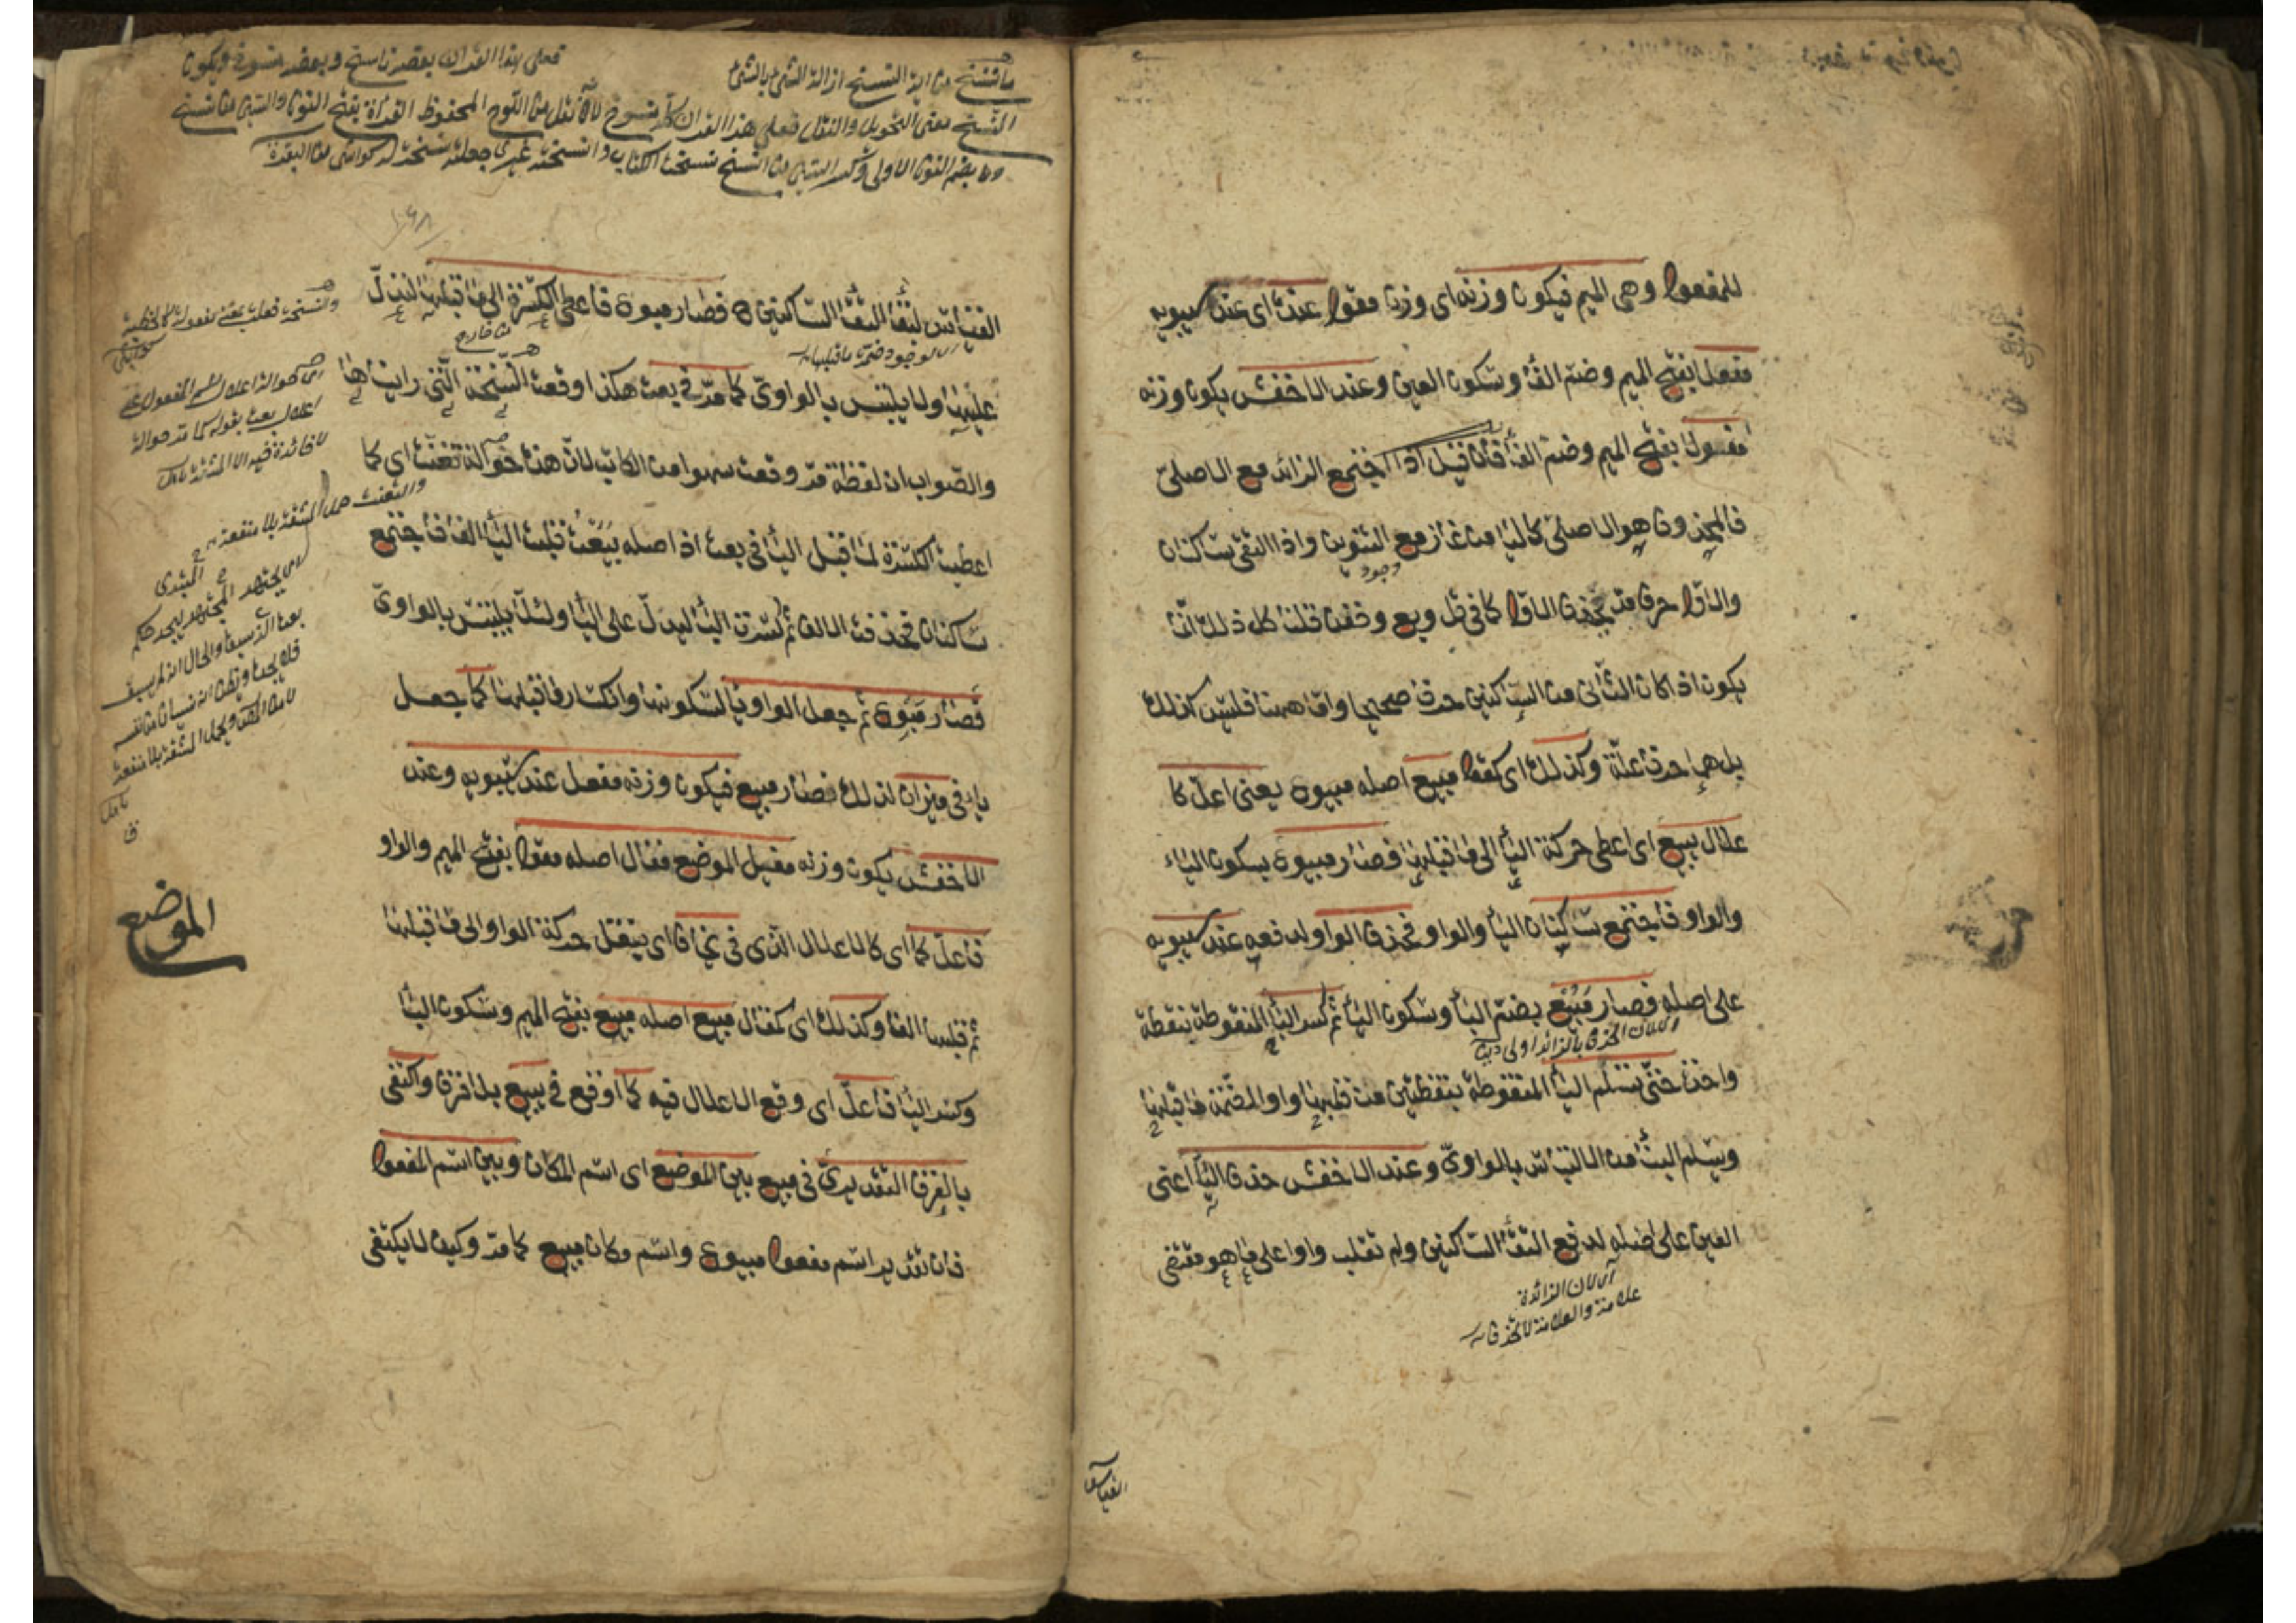 للمفعول وهى الميم فيكون وزنه اى وزن مقول عنده اى عند سيبويه
مفعل بفتح الميم وضم الفاء وسكون العين وعند الاخفش يكون وزنه
مفول بفتح الميم وضم الفاء فان قيل اذا اجتمع الزائد مع الاصلى
فالمحذوف هو الاصلى كالياء من غاز مع وجود التنوين واذا التقى ساكنان
والاول حرف مد يحذف الاول كما فى قل وبع وخف قلنا كل ذلك انما
يكون اذا كان الثانى من الساكنين حرفا صحيحا واما ههنا فليس كذلك
بل هما حرف علة وكذلك اى كمقول مبيع اصله مبيوع يعنى اعل كا
علال يبيع اى اعطى حركة الياء الى ما قبلها فصار مبيوع بسكون الياء
والواو فاجتمع ساكنان الياء والواو فحذف الواو لدفعه عند سيبويه
على اصله فصار مَبُيْع بضم الباء وسكون الياء ثم كسر الباء المنقوطة بنقطة
اى لان الحذف بالزائد اولى
واحدة حتى تسلم الياء المنقوطة بنقطتين من قلبها واوا لضمة ما قبلها
ويسلم البناء من الالتباس بالواوى وعند الاخفش حذف الياء اعنى
العين على اصله لدفع التقاء الساكنين ولم تقلب واوا على ما هو مقتضى
اى لان الزائدة
علامة والعلامة لا تحذف
القياس
ما ننسخ من اية النسخ ازالة الشئ بالشئ
فعلى هذا القران بعضه ناسخ وبعضه منسوخ ويكون
النسخ بمعنى التحويل والنقل فعلى هذا القران كله منسوخ لانه نقل من اللوح المحفوظ القراءة بفتح النون والسين من نسخ
ومن بضم النون الاولى وكسر السين من انسخ نسخت الكتاب وانسخته غيرى جعلته نسخة له من البقرة
القياس لتقاء التقاء الساكنين فصار مبوع فاعطى الكسرة الى ما قبلها لتدل
اى لوجود ضمة ما قبلها
عليها ولا يلتبس بالواوى كما مر فى بعت هكذا وقعت النسخة التى رايناها
والصواب ان لفظة مر وقعت سهوا من الكاتب لان هذه حوالة تعنت اى كما
اعطيت الكسرة لما قبل الياء فى بعت اذ اصله بَيَعْتُ قلبت الياء الفا فاجتمع
ساكنان فحذفت الالف ثم كسرت الباء ليدل على الياء ولئلا يلتبس بالواوى
فصار مَبِوْع ثم جعل الواو ياء لسكونها وانكسار ما قبلها كما جعل
ياء فى ميزان لذلك فصار مبيع فيكون وزنه مفعل عند سيبويه وعند
الاخفش يكون وزنه مفيل الموضع مقال اصله مقول بفتح الميم والواو
فاعل كما اى كالاعلال الذى فى يخاف اى ينتقل حركة الواو الى ما قبلها
ثم قلبها الفا وكذلك اى كمقال مبيع اصله مبيع بفتح الميم وسكون الباء
وكسر الياء فاعل اى وقع الاعلال فيه كما اوقع فى يبيع بلا فرق واكتفى
بالفرق التقديرى فى مبيع بين الموضع اى اسم المكان وبين اسم المفعول
فان تقدير اسم مفعول مبيوع واسم مكان مبيع كما مر وكيف لا يكتفى
والنسخة فعلة بمعنى مفعولة كالخطبة
اى حوالة اعلال اسم المفعول على
اعلال بعت بقوله كما مر حوالة
لا فائدة فيه الا المشقة
والتعنت حمل المشقة بلا منفعة
الموضع